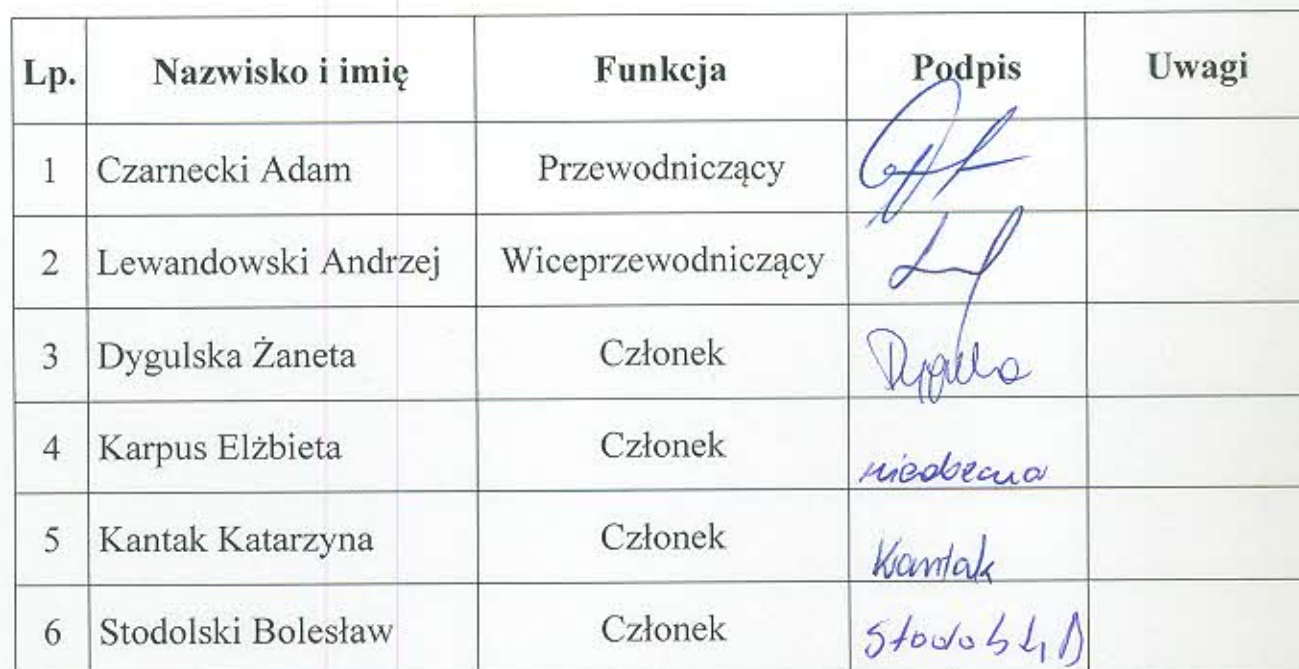 Lp. Nazwisko i imię Funkcja Podpis Uwagi
1 Czarnecki Adam Przewodniczący
2 Lewandowski Andrzej Wiceprzewodniczący
3 Dygulska Żaneta Członek
4 Karpus Elżbieta Członek nieobecna
5 Kantak Katarzyna Członek Kantak
6 Stodolski Bolesław Członek